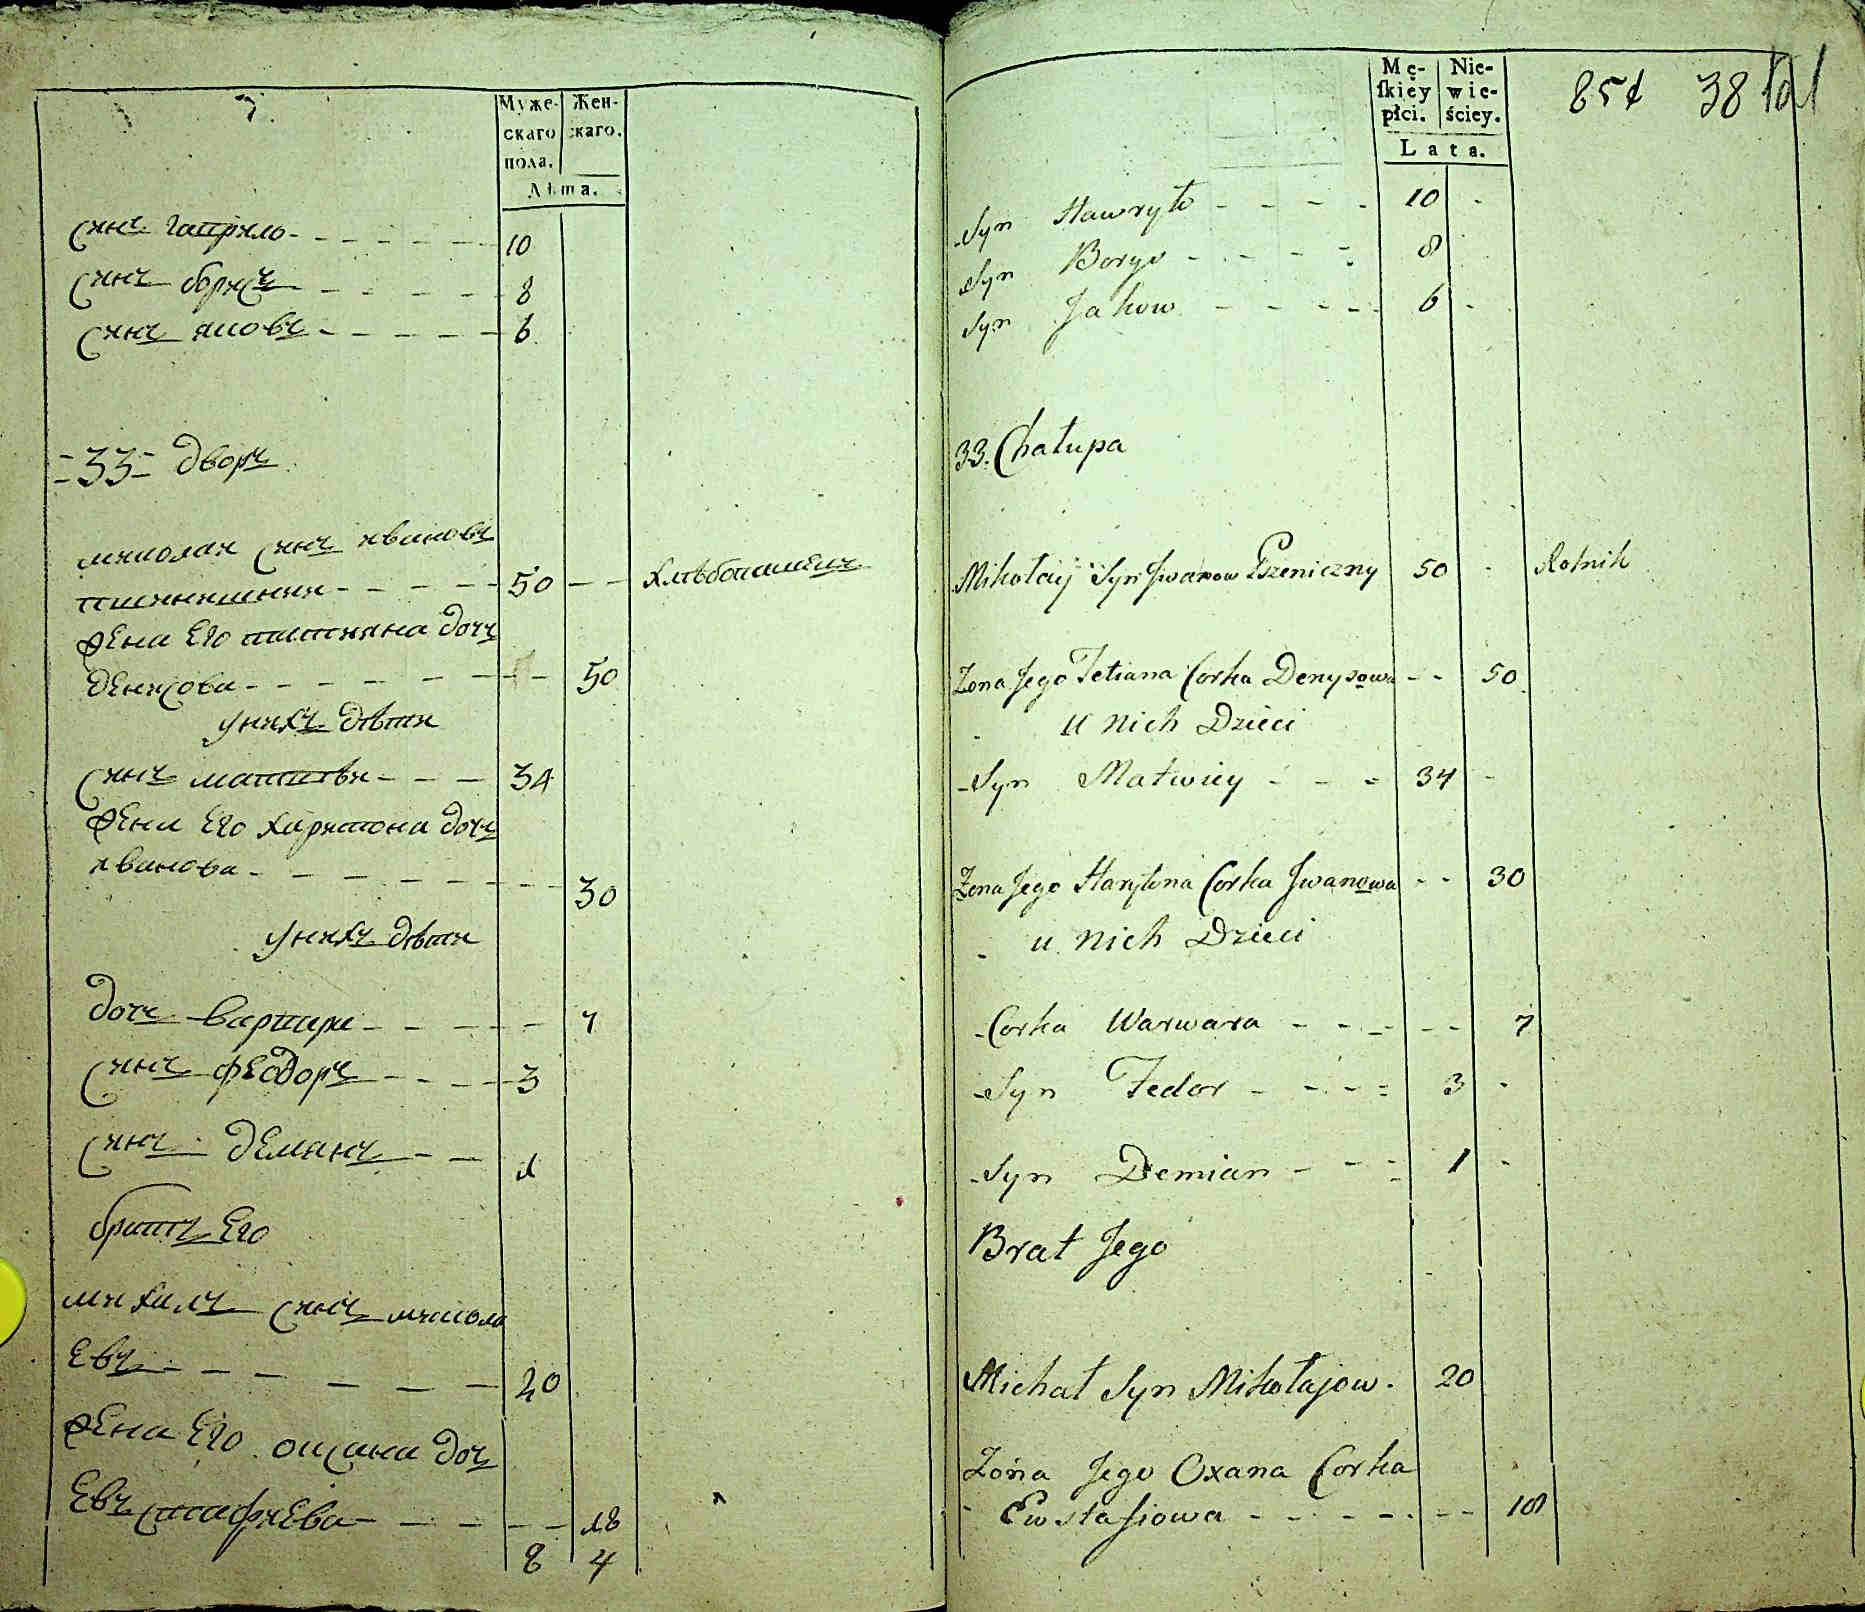 Муже-
скаго
пола.
Жен-
скаго.
Лѣта.
Синъ гаврило - - - - - - 10
Синъ борисъ - - - - - 8
Синъ яковъ - - - - - 6
=33= дворъ
миколаи Синъ ивановъ
пшенишнии - - - - - 50 - - хлѣбопашецъ
жена Его татияна дочъ
денисова - - - - - - - 50
унихъ дѣти
Синъ матвѣи - - - 34
жена Его харитона дочъ
иванова - - - - - - - 30
унихъ дѣти
дочъ варвара - - - - - 7
Синъ феодоръ - - - - 3
Синъ демянъ - - 1
братъ Его
михаилъ Синъ микола
евъ - - - - - - 20
жена Его оксана дочъ
Евъстафиева - - - - - 18
8 4
Mę-
skiey
płci.
Nie-
wie-
ściey.
Lata.
85 38
Syn Hawryło - - - - 10 -
Syn Borys - - - - 8
Syn Jakow - - - - - 6 -
33. Chałupa
Mikołaiy Syn Jwanow Pszeniczny 50 - Rolnik
Zona Jego Tetiana Corka Denysowa - - 50
u nich Dzieci
Syn Matwiey - - = 34 -
Zona Jego Harytona Corka Jwanowa - - 30
u nich Dzieci
Corka Warwara - - - - - 7
Syn Fedor - - - = 3 -
Syn Demian - - = 1 -
Brat Jego
Michał Syn Mikołajow. 20
Zona Jego Oxana Corka
Ewstafiowa - - - - - - - 18